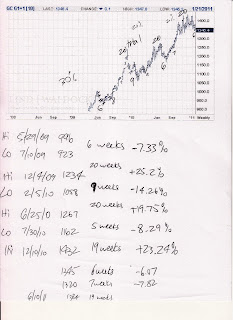 GC G1=1[1B] LAST 1346.4 CHANGE 0.1 HIGH 1347.0 LOW 1346.0 1/21/2011
20%
20
30%
1400.0
1300.0
1200.0
1100.0
1000.0
900.0
Weekly
Hi 5/29/09 996
6 weeks -7.33%
LO 7/10/09 923
20 weeks +25.2%
Hi 12/4/09 1234
9 weeks -14.26%
LO 2/5/10 1058
20 weeks +19.75%
Hi 6/25/10 1267
5 weeks -8.29%
LO 7/30/10 1162
19 weeks +23.24%
Hi 12/10/10 1432
1345 6 weeks -6.07
1320 7 weeks -7.82
6/10/11 19 weeks